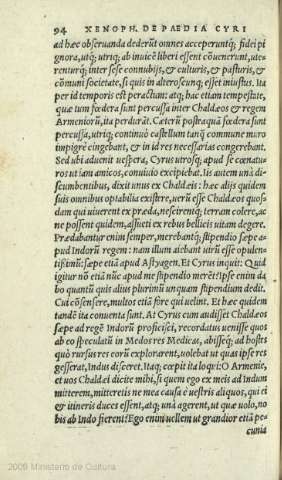 94 XENOPH. DE PAEDIA CYRI
ad hæc obseruanda dederũt omnes acceperuntq́;. fidei pi
gnora, utq́; utriq; ab inuicē liberi essent cōuenerunt, ute-
renturq́; inter sese connubijs, & culturis, & pasturis, &
cōmuni societate, si quis in alteros eunq; esset iniustus. Ita
per id temporis est peractum: atq; hac etiam tempestate,
quæ tum fœdera sunt percussa inter Chaldæos & regem
Armeniorũ, ita perdurãt. Cæterũ postꝗ̃ fœdera sunt
percussa, utriq; continuò castellum tanq̃ commune muro
impigrè cingebant, & in id res necessarias congerebant.
Sed ubi aduenit uespera, Cyrus utrosq; apud se cœnatu-
ros ut iam amicos, conuiuio excipiebat. Iis autem unà di-
scumbentibus, dixit unus ex Chaldæis: hæc alijs quidem
suis omnibus optabilia existere, uerũ esse Chaldæos quos-
dam qui uiuerent ex præda, nescirentq; terram colere, ac
ne possent quidem, assueti ex rebus bellicis uitam degere.
Prædabantur enim semper, merebantq́; stipendio sæpe a-
pud Indorũ regem: nam illum aiebant uirũ esse opulen-
tissimũ: sæpe etiã apud Astyagen. Et Cyrus inquit: Quid
igitur nõ etiã nũc apud me stipendio merēt? Ipse enim da
bo quantũ quis alius plurimũ unquam stipendium dedit.
Cui cōsensere, multos etiã fore qui uelint. Et hæc quidem
tandē ita conuenta sunt. At Cyrus cum audisset Chaldæos
sæpe ad regē Indorũ proficisci, recordatus uenisse quos
ab eo speculatũ in Medos res Medicas, abisseq; ad hostes
quò rursus res eorũ explorarent, uolebat ut quæ ipse res
gesserat, Indus disceret. Itaq; cœpit ita loqui: O Armenie,
et uos Chaldæi dicite mihi, si quem ego ex meis ad Indum
mitterem, mittereris ne mea causa è uestris aliquos, qui ei
& itineris duces essent, atq; unà agerent, ut quæ uolo, no
bis ab Indo fierent? Ego enim uellem ut grandior etiã pe-
cunia
2009 Ministerio de Cultura